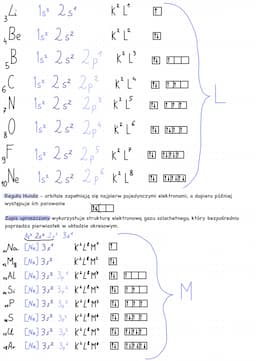 ₃Li 1s² 2s¹ K²L¹
₄Be 1s² 2s² K²L²
₅B 1s² 2s² 2p¹ K²L³
₆C 1s² 2s² 2p² K²L⁴
₇N 1s² 2s² 2p³ K²L⁵
₈O 1s² 2s² 2p⁴ K²L⁶
₉F 1s² 2s² 2p⁵ K²L⁷
₁₀Ne 1s² 2s² 2p⁶ K²L⁸
L
Reguła Hunda - orbitale zapełniają się najpierw pojedynczymi elektronami, a dopiero później
występuje ich parowanie
Zapis uproszczony wykorzystuje strukturę elektronową gazu szlachetnego, który bezpośrednio
poprzedza pierwiastek w układzie okresowym.
1s² 2s² 2p⁶ 3s¹
₁₁Na [Ne] 3s¹ K²L⁸M¹
₁₂Mg [Ne] 3s² K²L⁸M²
₁₃Al [Ne] 3s² 3p¹ K²L⁸M³
₁₄Si [Ne] 3s² 3p² K²L⁸M⁴
₁₅P [Ne] 3s² 3p³ K²L⁸M⁵
₁₆S [Ne] 3s² 3p⁴ K²L⁸M⁶
₁₇Cl [Ne] 3s² 3p⁵ K²L⁸M⁷
₁₈Ar [Ne] 3s² 3p⁶ K²L⁸M⁸
M